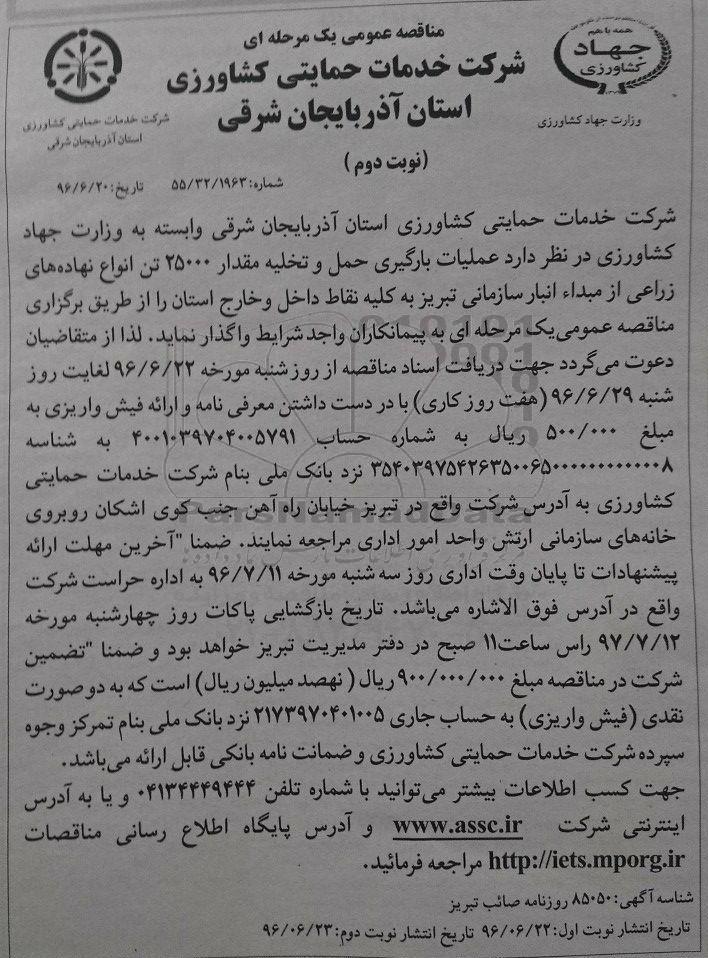 مناقصه عمومی یک مرحله ای
شرکت خدمات حمایتی کشاورزی
استان آذربایجان شرقی
(نوبت دوم)
همه با هم
جهاد
کشاورزی
وزارت جهاد کشاورزی
شرکت خدمات حمایتی کشاورزی
استان آذربایجان شرقی
شماره: ۵۵/۳۲/۱۹۶۳ تاریخ: ۹۶/۶/۲۰
شرکت خدمات حمایتی کشاورزی استان آذربایجان شرقی وابسته به وزارت جهاد
کشاورزی در نظر دارد عملیات بارگیری حمل و تخلیه مقدار ۲۵۰۰۰ تن انواع نهاده‌های
زراعی از مبداء انبار سازمانی تبریز به کلیه نقاط داخل وخارج استان را از طریق برگزاری
مناقصه عمومی یک مرحله ای به پیمانکاران واجد شرایط واگذار نماید. لذا از متقاضیان
دعوت می‌گردد جهت دریافت اسناد مناقصه از روز شنبه مورخه ۹۶/۶/۲۲ لغایت روز
شنبه ۹۶/۶/۲۹ (هفت روز کاری) با در دست داشتن معرفی نامه و ارائه فیش واریزی به
مبلغ ۵۰۰/۰۰۰ ریال به شماره حساب ۴۰۰۱۰۳۹۷۰۴۰۰۵۷۹۱ به شناسه
نزد بانک ملی بنام شرکت خدمات حمایتی
کشاورزی به آدرس شرکت واقع در تبریز خیابان راه آهن جنب کوی اشکان روبروی
خانه‌های سازمانی ارتش واحد امور اداری مراجعه نمایند. ضمنا "آخرین مهلت ارائه
پیشنهادات تا پایان وقت اداری روز سه شنبه مورخه ۹۶/۷/۱۱ به اداره حراست شرکت
واقع در آدرس فوق الاشاره می‌باشد. تاریخ بازگشایی پاکات روز چهارشنبه مورخه
۹۷/۷/۱۲ راس ساعت۱۱ صبح در دفتر مدیریت تبریز خواهد بود و ضمنا "تضمین
شرکت در مناقصه مبلغ ۹۰۰/۰۰۰/۰۰۰ ریال ( نهصد میلیون ریال) است که به دو صورت
نقدی (فیش واریزی) به حساب جاری ۲۱۷۳۹۷۰۴۰۱۰۰۵ نزد بانک ملی بنام تمرکز وجوه
سپرده شرکت خدمات حمایتی کشاورزی و ضمانت نامه بانکی قابل ارائه می‌باشد.
جهت کسب اطلاعات بیشتر می‌توانید با شماره تلفن ۰۴۱۳۴۴۴۹۴۴۴ و یا به آدرس
اینترنتی شرکت www.assc.ir و آدرس پایگاه اطلاع رسانی مناقصات
http://iets.mporg.ir مراجعه فرمائید.
شناسه آگهی: ۸۵۰۵۰ روزنامه صائب تبریز
تاریخ انتشار نوبت اول: ۹۶/۰۶/۲۲ تاریخ انتشار نوبت دوم: ۹۶/۰۶/۲۳
ParsNamadData